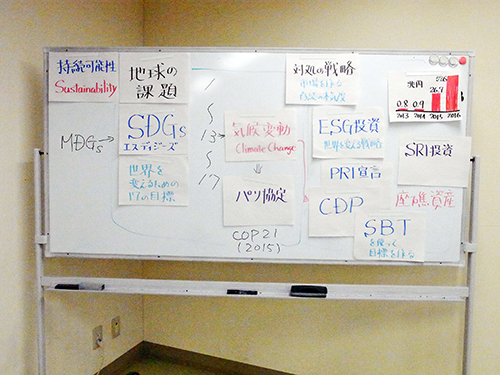 持続可能性
Sustainability
地球の
課題
MDGs→
SDGs
エスディジーズ
世界を
変えるための
17の目標
1
13→
17
気候変動
Climate Change
パリ協定
COP21
(2015)
対処の戦略
ESG投資
世界を変える戦略
PRI宣言
CDP
SBT
を使って
目標を
兆円
0.8 0.9 26.7 57.05
2013 2014 2015 2016
SRI投資
座礁資産